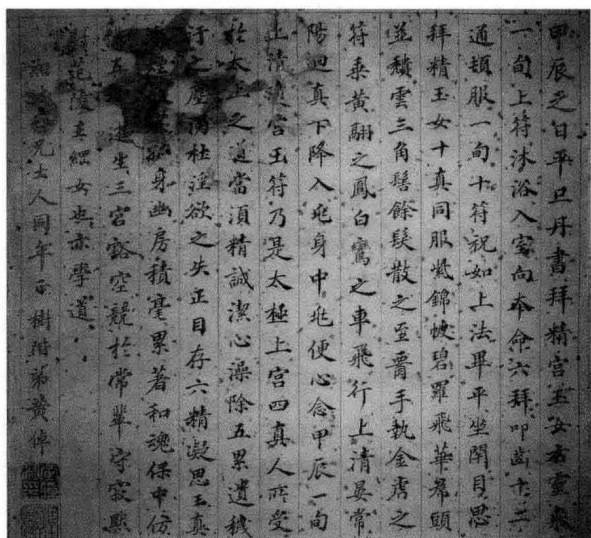 甲辰之日平旦丹書拜精宮玉女右靈飛
一旬上符沐浴入室向本命六拜叩齒十二
通頓服一旬十符祝如上法畢平坐閉目思
拜精玉女十真同服紫錦帔碧羅飛華帬頭
並頹雲三角髻餘髮散之至腰手執金虎之
符乘黃翮之鳳白鸞之車飛行上清晏常
陽迴真下降入兆身中兆便心念甲辰一旬
上清瓊宮玉符乃是太極上宮四真人所受
於太上之道當須精誠潔心澡除五累遺穢
汙之塵濁杜淫欲之失正目存六精凝思玉真
身幽房積毫累著和魂保中仿
五遊生三宮豁空競於常輩守寂默
范陵王經女也亦學道
兄士人同年正樹階弟黃倬